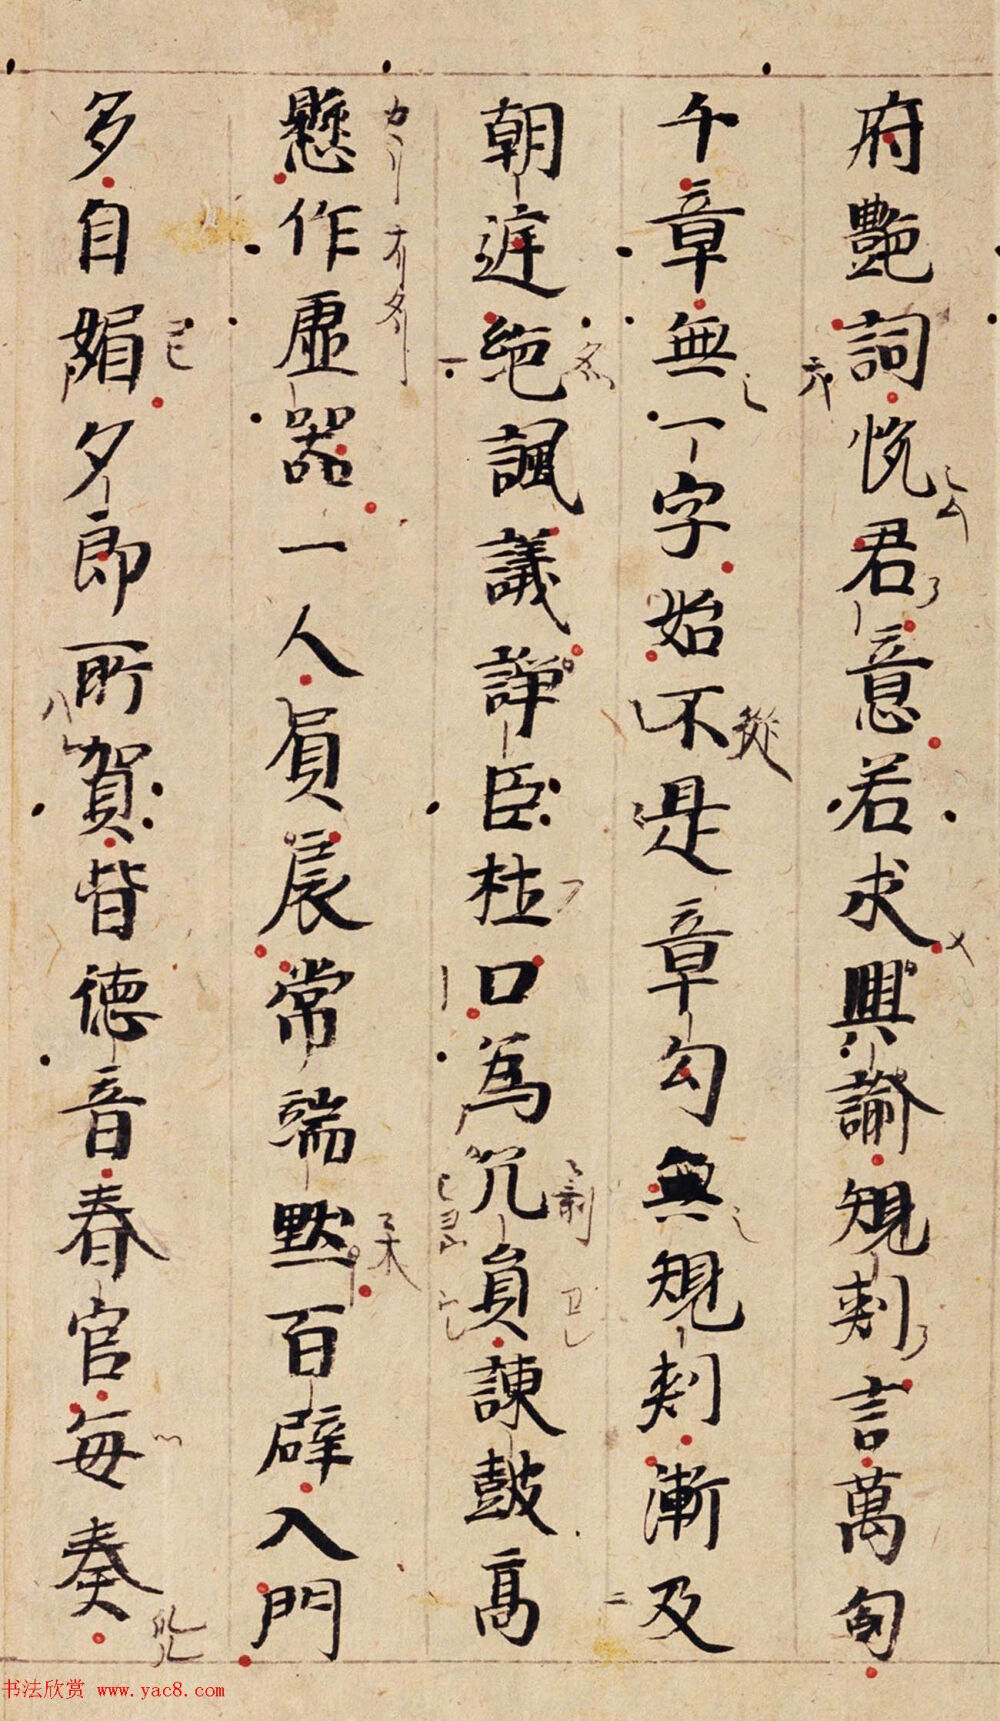 府艷詞恱君意若求興諭規刾言萬句
千章無一字始不是章勾無規刾漸及
從
朝遅絶諷議諍臣杜口為冗員諫鼓高
懸作虛器一人負扆常端默百辟入門
多自媚夕郎所賀皆德音春官每奏
书法欣赏 www.yac8.com